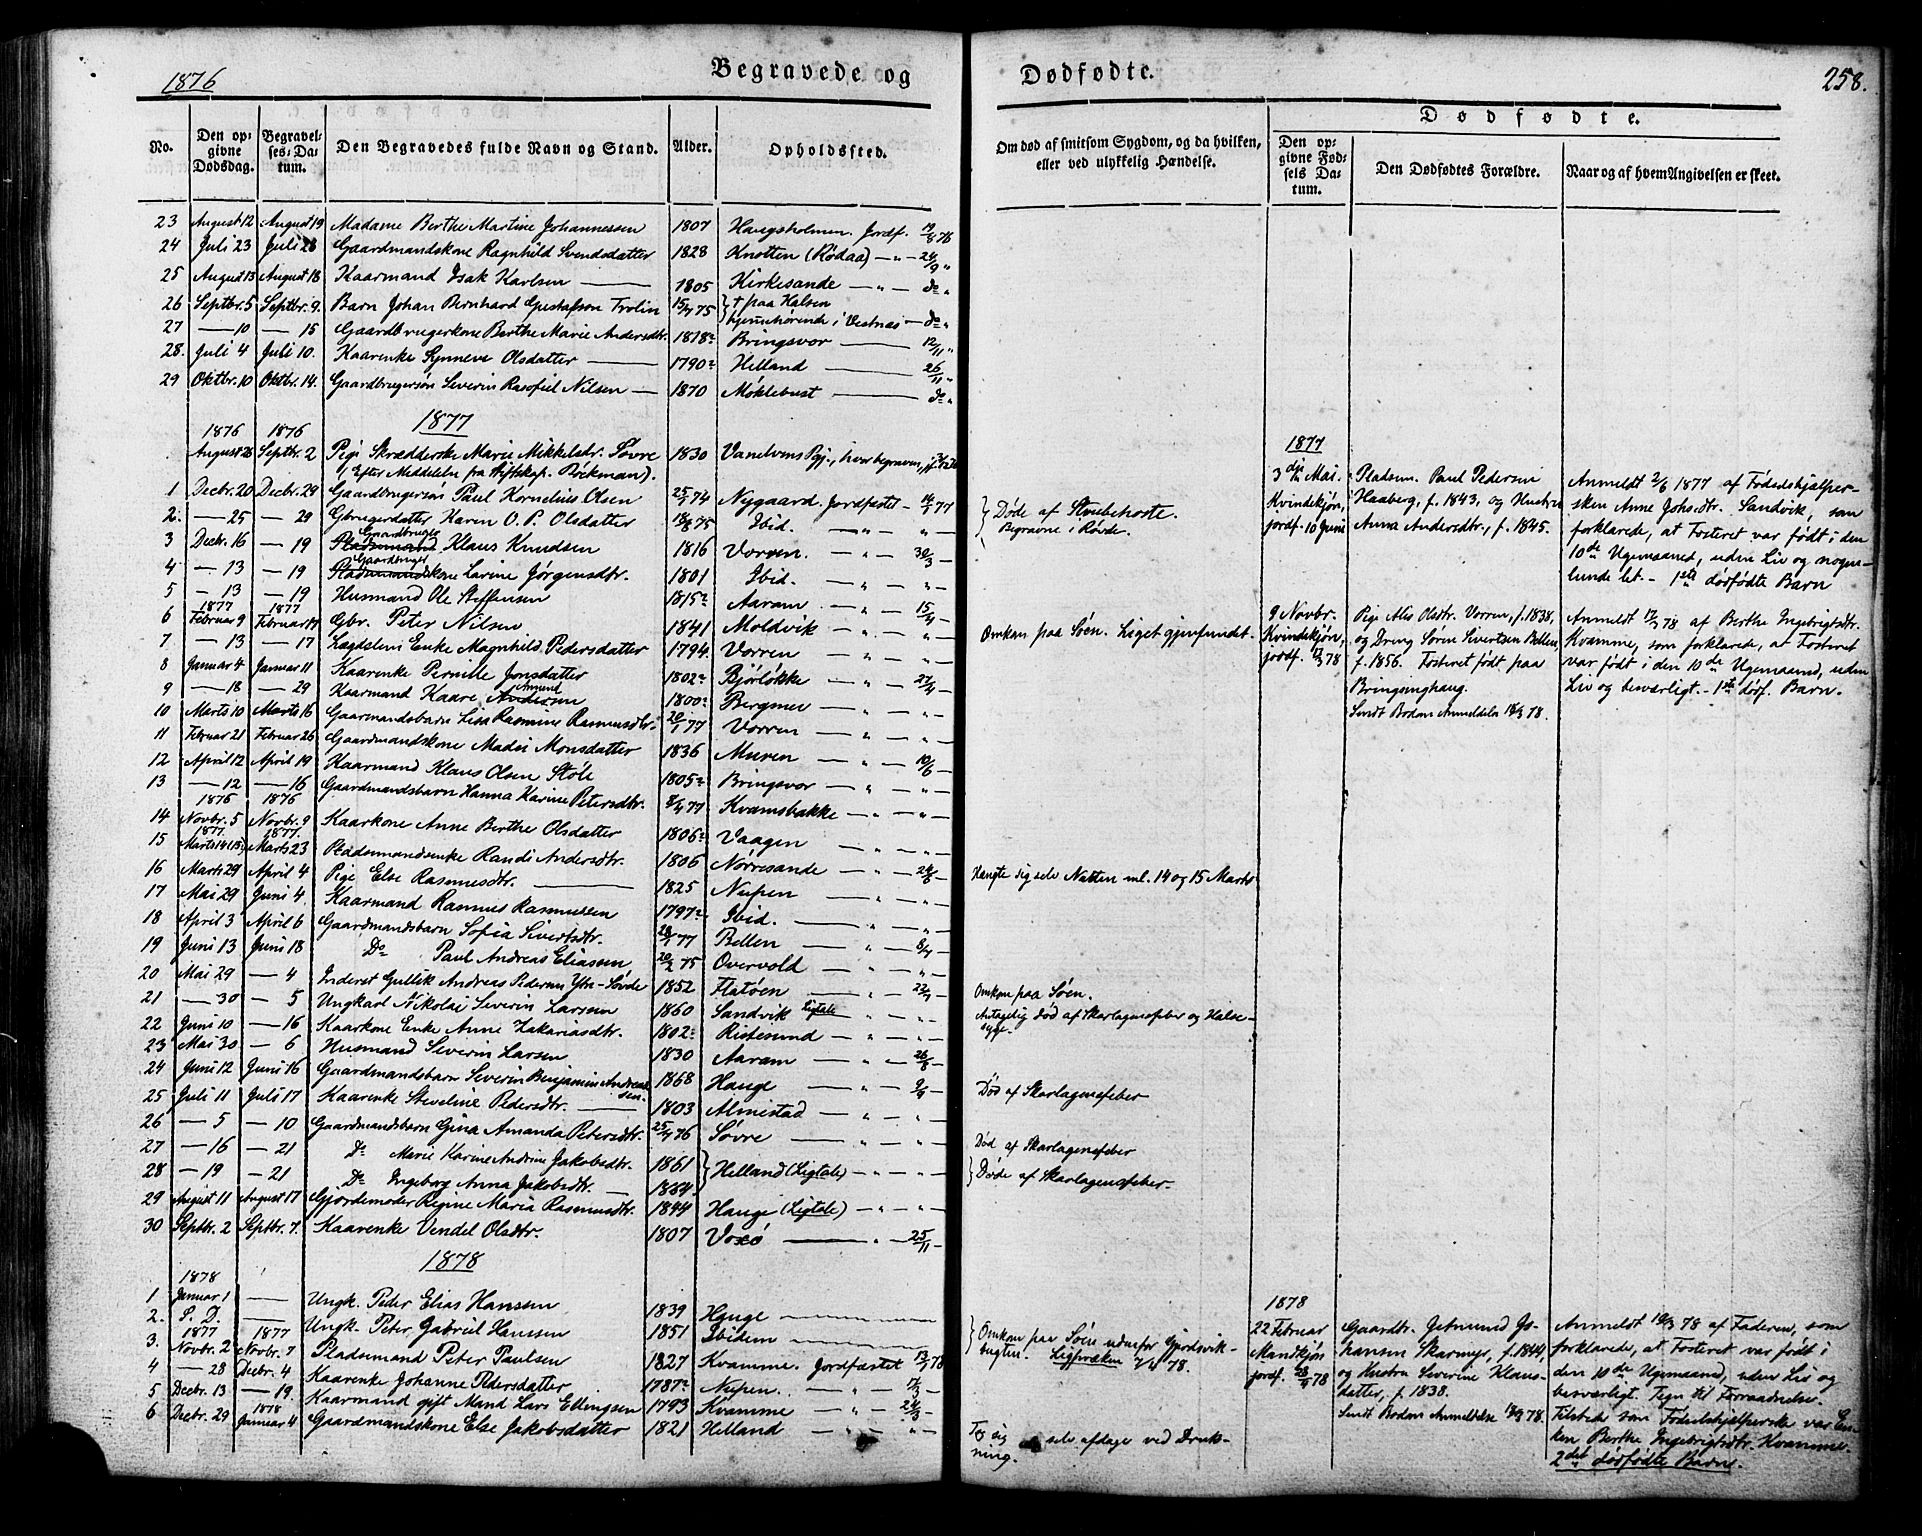 1876
Begravede og
Dødfødte.
258.
No.
Den opgivne Dødsdag.
Begravelses-Datum.
Den Begravedes fulde Navn og Stand.
Alder.
Opholdssted.
Om død af smitsom Sygdom, og da hvilken,
eller ved ulykkelig Hændelse.
Dødfødte.
Den opgivne Fødsels Datum.
Den Dødfødtes Forældre.
Naar og af hvem Angivelsen er skeet.
23 August 12 August 19 Madame Berthe Martine Johannessen 1807 Haugsholmen Jordf. 19/8 76
24 Juli 23 Juli 28 Gaardmandskone Ragnhild Svendsdatter 1828 Knotten (Rødaa) — " — 24/9 "
25 August 13 August 18 Kaarmand Isak Karlsen 1805 Kirkesande — " — do "
26 Septbr. 5 Septbr. 9. Barn Johan Bernhard Gustafson Trolin 15/7 75 † paa Halsen
27 — 10 — 15 Gaardbrugerkone Berthe Marie Andersdtr. 1818 Bringsvor 12/11 "
hjemmehørende i Vestnæs — do "
28. Juli 4 Juli 10. Kaarenke Synneve Olsdatter 1790 Helland 26/11 "
29 Oktbr. 10 Oktbr. 14. Gaardbrugersøn Severin Rasofiel Nilsen 1870 Møklebust do "
1877
1876 1876
August 26 Septbr. 2 Pige Skrædderske Marie Mikkelsdr. Søvre 1830 Vanelvens Pgj., hvor begraven,
(Efter Meddelelse fra Stiftskap. Böckman).
1 Decbr. 20 Decbr. 29 Gaardbrugersøn Paul Kornelius Olsen 25/1 74 Nygaard. Jordfæstet 14/1 77
2. — 25 — 29 Gbrugerdatter Karen O. P. Olsdatter Ibid. — " — " —
Døde af Strubehoste.
Begravne i Rovde.
3 Decbr. 16 — 19 Gaardbruger Klaus Knudsen 1816 Vorren. — " — 30/3 —
4 — 13 — 19 Gaardbrugerkone Larine Jørgensdtr. 1801 Ibid. — " — " —
5 — 13 — 19 Husmand Ole Steffensen 1815 Aaram — " — 15/4 —
1877 1877
6 Februar 9 Februar 17 Gbr. Peter Nilsen 1841 Moldvik — " — " — Omkom paa Søen. Liget gjenfundet.
7 — 13 — 17 Lægdslem Enke Magnhild Pedersdatter 1794. Vorren — " — " —
8 Januar 4 Januar 11 Kaarenke Pernille Jonsdatter 1802 Bjørløkke — " — 22/4 —
9 — 18 — 29 Kaarmand Kaare Amund 1800 Bergmer — " — " —
10 Marts 10 Marts 16 Gaarmandsbarn Lisa Rasmine Rasmusdtr. 20/1 77 Vorren — " — " —
11 Februar 21 Februar 26 Gaardmandskone Madli Monsdatter 1836 Muren — " — 10/6 —
12 April 12 April 19 Kaarmand Klaus Olsen Støle 1805 Bringsvor — " — " —
13 — 12 — 16 Gaardmandsbarn Hanna Karine Petersdtr. 8/4 77 Kvamsbakke — " — " —
1876 1876
14 Novbr. 5 Novbr. 9 Kaarkone Anne Berthe Olsdatter 1806 Vaagen — " — " —
1877 1877
15 Marts 14 (15) Marts 23 Pladsmandsenke Randi Andersdtr. 1806 Nørresande — " — 24/6 — Hængte sig selv Natten ml. 14 og 15 Marts
16 Marts 29 April 4 Pige Else Rasmusdtr. 1825 Nupen — " — " —
17 Mai 29 Juni 4 Kaarmand Rasmus Rasmussen 1797 Ibid. — " — " —
18 April 3 April 6 Gaardmandsbarn Sofia Sivertsdtr. 28/1 77 Bellen — " — 8/7 —
19 Juni 13 Juni 18 Do Paul Andreas Eliassen 20/2 75 Overvold — " — " —
20 Mai 29 — 4 Inderst Gullik Andreas Pedersen Ytre-Søvde 1852 Flatøen — " — 22/7 — Omkom paa Søen.
21 — 30 — 5 Ungkarl Nikolai Severin Larssen 1860 Sandvik Ligtale — " — " — Antagelig død af Skarlagensfeber og Halse-
syge.
22 Juni 10 — 16 Kaarkone Enke Anne Zakariasdtr. 1802 Ristesund — " — " —
23 Mai 30 — 6 Husmand Severin Larsen 1830 Aaram — " — 26/8 —
24 Juni 12 Juni 16 Gaardmandsbarn Severin Benjamin Andreas-
sen. 1868 Hauge — " — 9/9 — Død af Skarlagensfeber
25 Juli 11 Juli 17 Kaarenke Steveline Pedersdtr. 1803 Almestad — " — " —
26 — 5 — 10 Gaardmandsbarn Gina Amanda Petersdtr. 25/7 76 Søvre — " — " — Død af Skarlagensfeber
27 — 16 — 21 Do Marie Karine Andrine Jakobsdtr. 1861 Helland (Ligtale) — " — " — Døde af Skarlagensfeber.
28 — 19 — 21 Do Ingeborg Anna Jakobsdtr. 1864.
29 August 11 August 17 Gjordemoder Regine Maria Rasmusdtr. 1844 Hauge (Ligtale) — " — " —
30 Septbr. 2 Septbr. 7. Kaarenke Vendel Olsdtr. 1807 Voxø — " — 25/11 —
1878
1878
1 Januar 1 — Ungk. Peder Elias Hanssen 1839 Hauge
2. S. D. — Ungk. Peter Gabriel Hanssen 1851 Ibidem
Omkom paa Søen udenfor Gjordsvik-
bugten. Ligfunden 7/4 78.
1877 1877
3. Novbr. 2 Novbr. 7 Pladsemand Peter Paulsen 1827 Kvamme. Jordfæstet 13/1 78
4 — 28 Decbr. 4 Kaarenke Johanne Pedersdatter 1787 Nupen. — " — 17/3 —
5 Decbr. 13 — 19 Kaarmand gift Mand Lars Ellingsen 1793 Kvamme — " — 24/3 —
1878
6 Decbr. 29 Januar 4 Gaardmandskone Else Jakobsdatter 1821 Helland — " — " — Tog sig
selv afdage ved Druk-
ning.
1877
3die Mai.
Kvindekjøn,
jordf. 10 Juni
Pladsm. Paul Pedersen
Haaberg, f. 1843, og Hustru
Anna Andersdtr., f. 1845.
Anmeldt 2/6 1877 af Fødselshjælper-
sken Anne Johsdtr. Sandvik, som
forklarede, at Fosteret var født i den
10de Ugemaaned, uden Liv og nogen-
lunde let. — 1ste dødfødte Barn
9 Novbr.
Kvindekjøn,
jordf. 17/3 78
Pige Alis Olsdtr. Vorren, f. 1838,
og Dreng Søren Sivertsen Bellen,
f. 1856. Fosteret født paa
Bringsinghaug.
Sendt Bodom Anmeldelse 18/3 78.
Anmeldt 17/3 78 af Berthe Ingebrigtsdtr.
Kvamme, som forklarede, at Fosteret
var født i den 10de Ugemaaned, uden
Liv og besværligt. — 1ste dødf. Barn.
1878
22 Februar
Mandkjøn
jordf. 28/4 78
Gaardbr. Jetmund Jo-
hansen Skarmyr, f. 1844,
og Hustru Severine Klaus-
datter, f. 1838.
Sendt Bodom Anmeldelse 18/3 78.
Anmeldt 10/3 78 af Faderen, som
forklarede, at Fosteret var født i
den 10de Ugemaaned, uden Liv og
besværligt. Tegn til Forraadnelse.
Tilstede som Fødselshjælperske var En-
ken Berthe Ingebrigtsdtr. Kvamme.
2det dødfødte Barn.